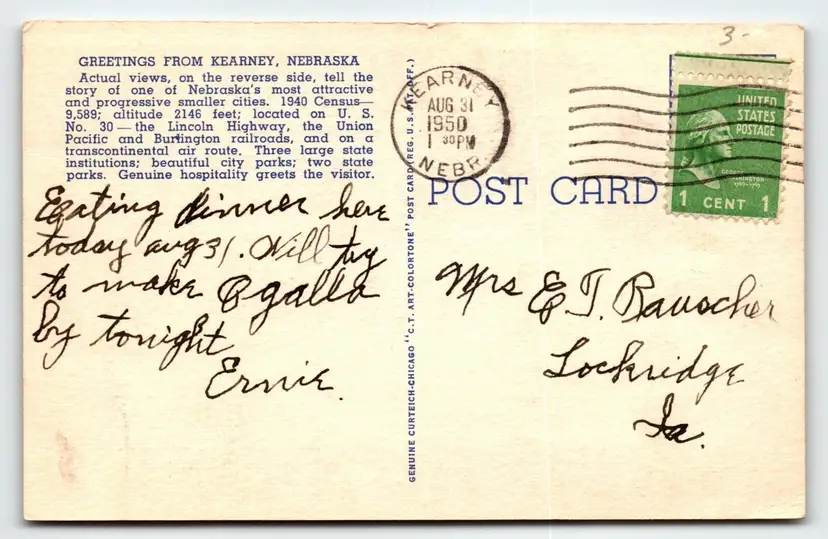 3-
GREETINGS FROM KEARNEY, NEBRASKA
Actual views, on the reverse side, tell the
story of one of Nebraska's most attractive
and progressive smaller cities. 1940 Census—
9,589; altitude 2146 feet; located on U. S.
No. 30 — the Lincoln Highway, the Union
Pacific and Burlington railroads, and on a
transcontinental air route. Three large state
institutions; beautiful city parks; two state
parks. Genuine hospitality greets the visitor.
Eating dinner here
today aug 31. Will try
to make Ogalla
by tonight
Ernie.
GENUINE CURTEICH-CHICAGO "C.T. ART-COLORTONE" POST CARD (REG. U.S. PAT. OFF.)
KEARNEY
AUG 31
1950
1 30 PM
NEBR.
UNITED
STATES
POSTAGE
GEORGE
WASHINGTON
1789-1797
1 CENT 1
POST CARD
Mrs E. T. Rauscher
Lockridge
Ia.